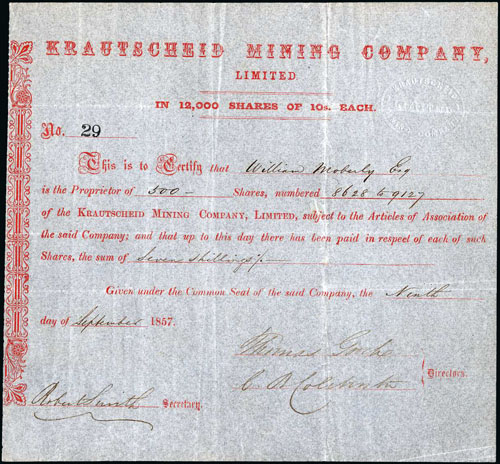 KRAUTSCHEID MINING COMPANY,
LIMITED.
IN 12,000 SHARES OF 10s. EACH.
No. 29
This is to Certify that William Moberly Esq
is the Proprietor of 500 — Shares, numbered 8628 to 9127
of the KRAUTSCHEID MINING COMPANY, LIMITED, subject to the Articles of Association of
the said Company; and that up to this day there has been paid in respect of each of such
Shares, the sum of Seven shillings/-
Given under the Common Seal of the said Company, the Ninth
day of September 1857.
Thomas
Directors.
Robert Smith Secretary.